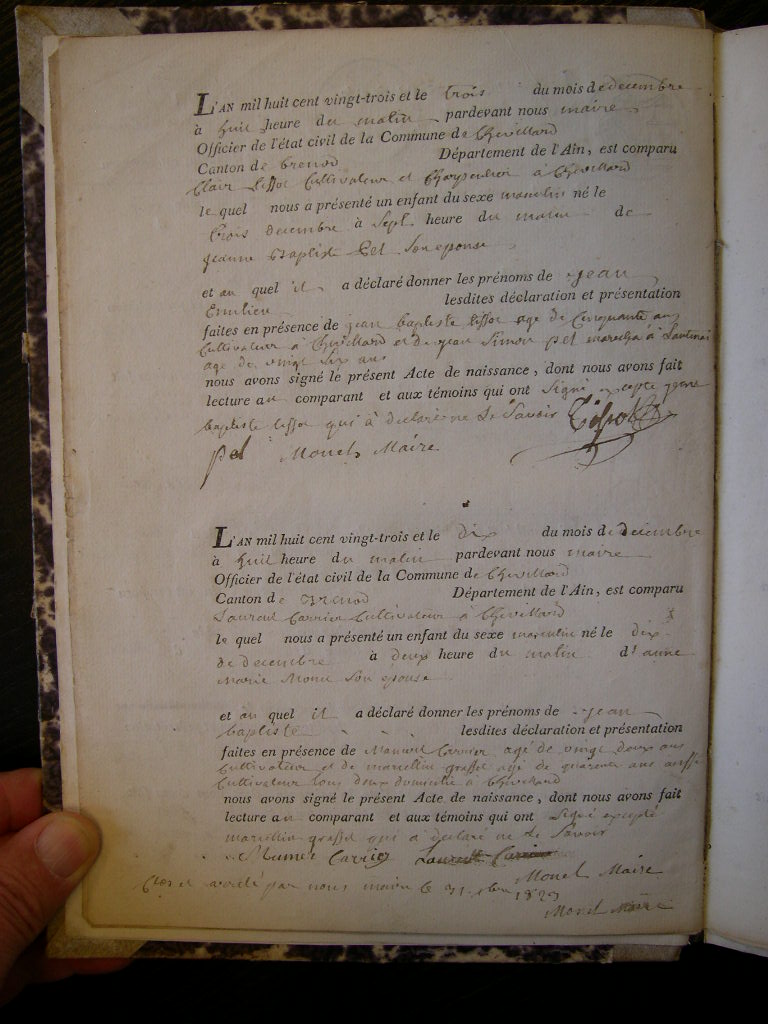 L'AN mil huit cent vingt-trois et le trois du mois de decembre
à huit heure du matin pardevant nous maire
Officier de l'état civil de la Commune de Chevillard
Canton de brenod Département de l'Ain, est comparu
Clair Cultivateur et à Chevillard
le quel nous a présenté un enfant du sexe masculin né le
trois decembre à sept heure du matin de
jeanne Baptiste Pet son epouse
et au quel il a déclaré donner les prénoms de jean
Emilien lesdites déclaration et présentation
faites en présence de jean baptiste age de Cinquante ans
Cultivateur à Chevillard et de jean Simon pet marechal à
age de vingt six ans
nous avons signé le présent Acte de naissance, dont nous avons fait
lecture au comparant et aux témoins qui ont signé excepte jeane
baptiste qui à declaré ne le Savoir
pet Monet Maire
L'AN mil huit cent vingt-trois et le dix du mois de decembre
à huit heure du matin pardevant nous maire
Officier de l'état civil de la Commune de Chevillard
Canton de Brenod Département de l'Ain, est comparu
Laurent Carrier Cultivateur à Chevillard
le quel nous a présenté un enfant du sexe masculin né le dix
de decembre à deux heure du matin d'anne
Marie Monet Son épouse
et au quel il a déclaré donner les prénoms de jean
baptiste lesdites déclaration et présentation
faites en présence de Carrier agé de vingt deux ans
Cultivateur et de marcellin agé de quarante ans aussi
Cultivateur tous deux domicilié à Chevillard
nous avons signé le présent Acte de naissance, dont nous avons fait
lecture au comparant et aux témoins qui ont signé excepté
marcellin qui a declaré ne le Savoir
Carrier Laurent Carrier
Monet Maire
Clos et arrêté par nous maire le 31 xbre 1823
Monet Maire